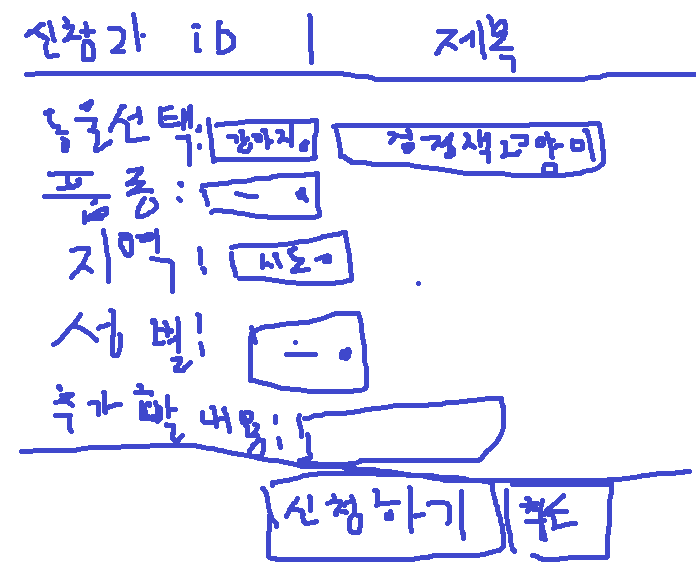 신청자 iD | 제목
동물선택: 강아지 검정색고양이
품종: -
지역: 시도
성별: -
추가할 내용:
신청하기 취소